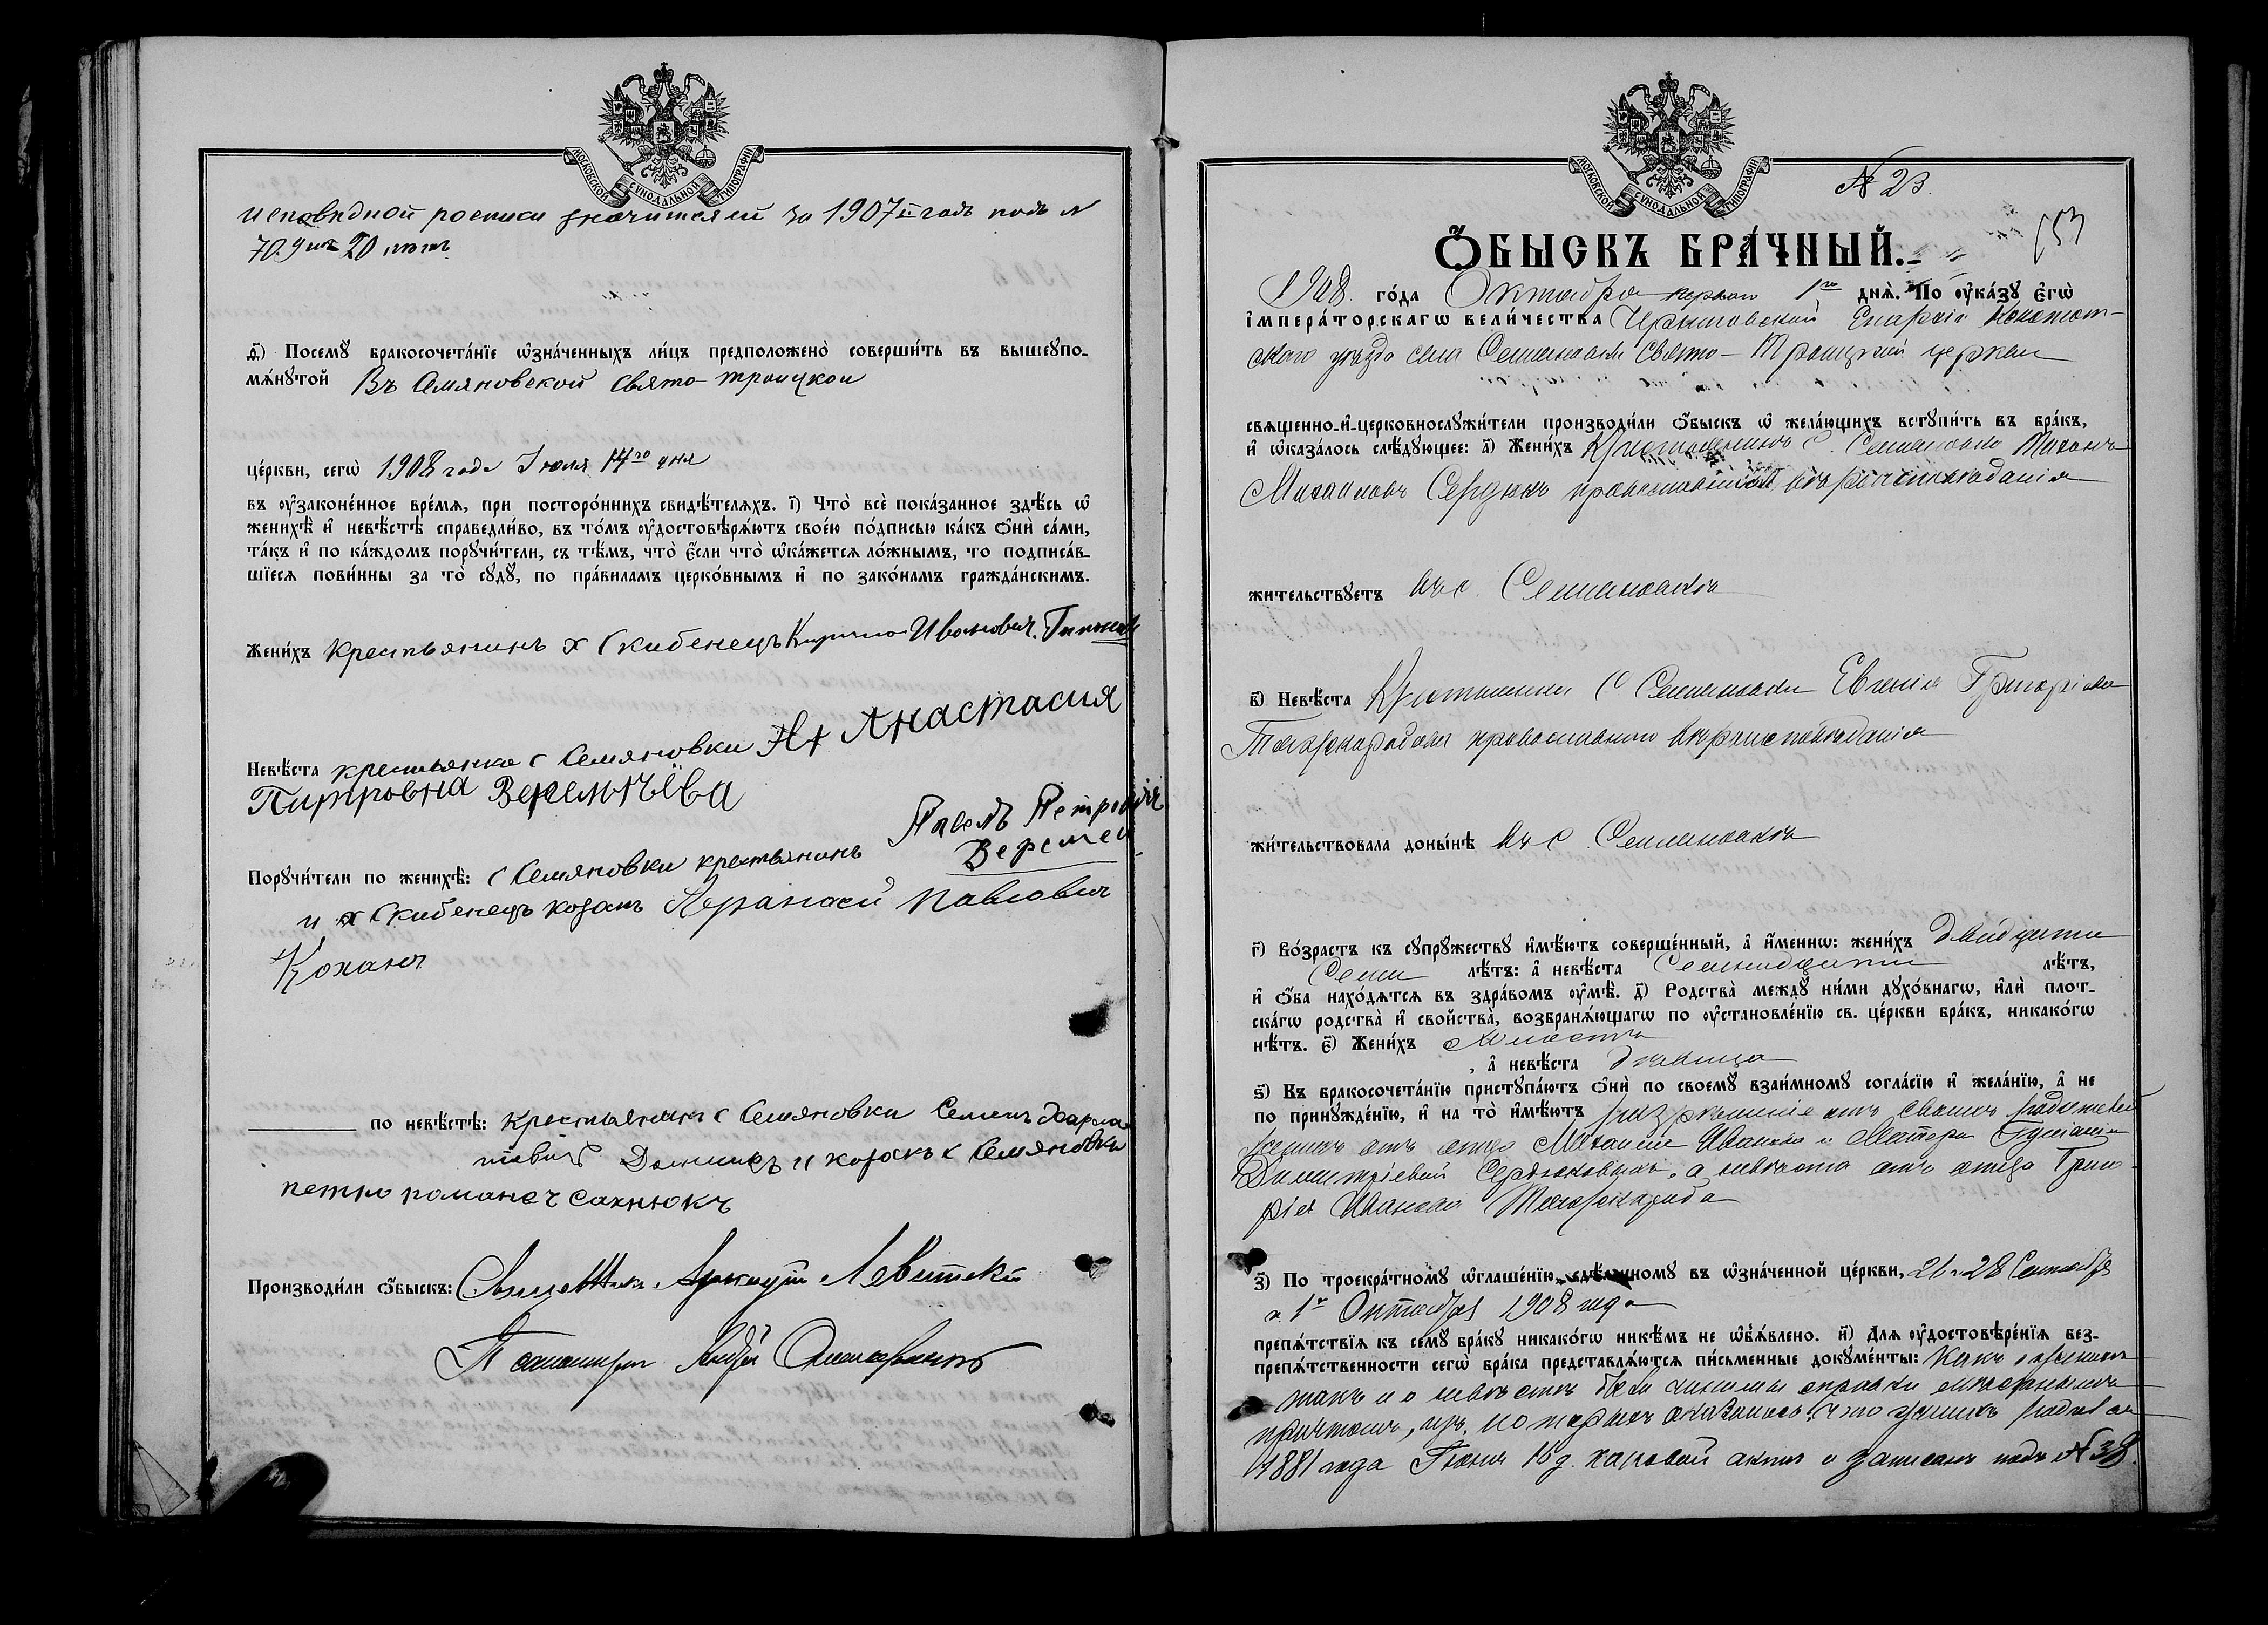 МОСКОВСКОЙ СѴНОДАЛЬНОЙ ТИПОГРАФІИ
исповѣдной росписи значится за 1907й годъ подъ №
70. 20 лѣтъ
д҃) Посемꙋ бракосочета́нїе ѡзна́ченныхъ ли́цъ предположено̀ соверши́ть въ вышеꙋпо-
мѧ́нꙋтой Въ Семяновской Свято-Троицкой
це́ркви, сегѡ̀ 1908 года Іюля 14го дня
въ ᲂу҆законе́нное вре́мѧ, при посторо́ннихъ свидѣ́телѧхъ. і҃) Что̀ всѐ пока́занное здѣ́сь ѡ
женихѣ̀ и҆ невѣ́стѣ справедли́во, въ то́мъ ᲂу҆достовѣрѧ́ютъ свое́ю по́дписью ка́къ ѻ҆нѝ са́ми,
та́къ и҆ по ка́ждомъ порꙋчи́тели, съ тѣ́мъ, что̀ є҆́сли что̀ ѡ҆ка́жетсѧ ло́жнымъ, то подписа́в-
шїесѧ пови́нны за то̀ сꙋдꙋ̀, по пра́виламъ церко́внымъ и҆ по зако́намъ гражда́нскимъ.
Жени́хъ крестьянинъ х Скибенецъ Кирило Иванович.
Невѣ́ста крестьянка с Семяновки Анастасия
Питровна
Порꙋчи́тели по женихѣ̀: с Семяновки крестьянинъ Павелъ Петровичъ
Веремей
и х Скибенецъ козакъ Афанасий Павлович
Коханъ
по невѣ́стѣ: крестьянинъ с Семяновки Семенъ
и козакъ с Семяновки
петро романеч сахнюкъ
Производи́ли ѻ҆́быскъ: Священникъ Аркадій Левитскій
Андрей
МОСКОВСКОЙ СѴНОДАЛЬНОЙ ТИПОГРАФІИ
№ 23.
153
Ѻ҆́БЫСКЪ БРА́ЧНЫЙ.
1908. го́да Октября первого 1го днѧ̀. По ᲂу҆ка́зꙋ є҆гѡ̀
і҆мпера́торскагѡ вели́чества Черниговской Епархіи Конотоп-
скаго уѣзда села Семяновки Свято-Троицкой церкви
свѧщенно-и҆-церковнослꙋжи́тели производи́ли ѻ҆́быскъ ѡ҆ жела́ющихъ встꙋпи́ть въ бра́къ,
и҆ ѡ҆каза́лось слѣ́дꙋющее: а҃) Жени́хъ Крестьянинъ с. Семяновки
Михаиловъ Сердюкъ православнаго вѣроисповѣданія
жи́тельствꙋетъ въ с. Семяновкѣ
в҃) Невѣ́ста Крестьянка с Семяновки Евгенія Григоріева
православного вѣроисповѣданія
жи́тельствовала доны́нѣ въ с. Семяновкѣ
г҃) Во́зрастъ къ сꙋпрꙋ́жествꙋ и҆мѣ́ютъ соверше́нный, а҆ и҆́меннѡ: жени́хъ двадцати
Семи лѣ́тъ: а҆ невѣ́ста Семнадцати лѣ́тъ,
и҆ ѻ҆́ба нахо́дѧтсѧ въ здра́вомъ ᲂу҆мѣ̀. д҃) Родства̀ междꙋ̀ ни́ми дꙋхо́внагѡ, и҆лѝ плот-
ска́гѡ родства̀ и҆ свойства̀, возбранѧ́ющагѡ по ᲂу҆становле́нїю св. це́ркви бра́къ, никако́гѡ
нѣ́тъ. є҃) Жени́хъ холостъ
, а҆ невѣ́ста дѣвица
ѕ҃) Къ бракосочета́нїю пристꙋпа́ютъ ѻ҆нѝ по своемꙋ̀ взаи́мномꙋ согла́сїю и҆ жела́нїю, а҆ не
по принꙋжде́нїю, и҆ на то̀ и҆мѣ́ютъ разрѣшеніе отъ своихъ родителей
женихъ отъ отца Михаила Иванова и матери
Димитріевой Сердюковыхъ, а невѣста отъ отца Григо-
рія Иванова
з҃) По троекра́тномꙋ ѡ҆глаше́нїю, сдѣ́ланномꙋ въ ѡ҆зна́ченной це́ркви, 21 и 28 Сентября
и 1го Октября 1908 года
препѧ́тствїѧ къ семꙋ̀ бра́кꙋ никако́гѡ никѣ́мъ не ѡ҆б̾ѧ́влено. и҃) Длѧ ᲂу҆достовѣре́нїѧ без-
препѧ́тственности сегѡ̀ бра́ка представлѧ́ютсѧ пи́сьменные докꙋме́нты: Какъ о женихѣ
такъ и о невѣстѣ были чинимы справки мѣстнымъ
причтомъ, изъ которыхъ оказалось, что женихъ родился
1881 года Іюня 16 д. и записанъ подъ № 38.